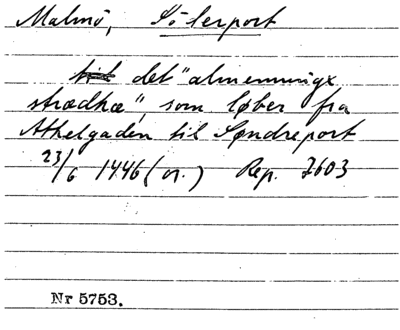 Malmö, Söderport
till det "almenningx
strædhæ", som løber fra
Athelgaden til Søndreport
23/6 1446 (or.) Rep. 7603
Nr 5753.